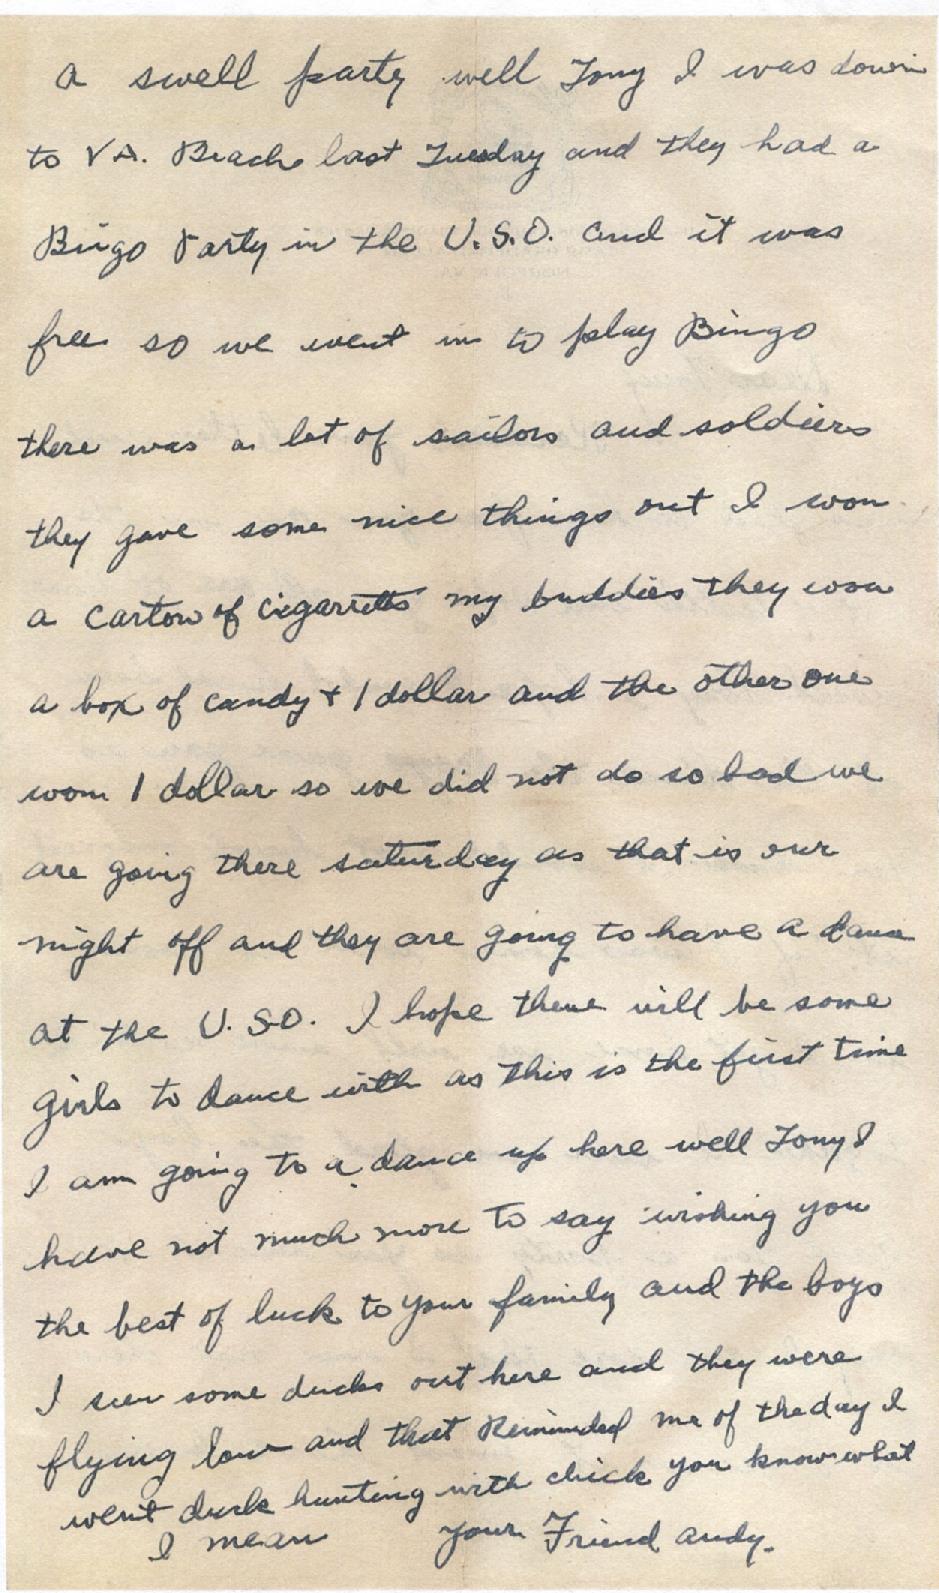 a swell party well Tony I was down
to VA. Beach last Tuesday and they had a
Bingo Party in the U.S.O. and it was
free so we went in to play Bingo
there was a lot of sailors and soldiers
they gave some nice things out I won
a carton of cigarretts my buddies they won
a box of candy + 1 dollar and the other one
wom 1 dollar so we did not do so bad we
are going there saturday as that is our
night off and they are going to have a dance
at the U.S.O. I hope there will be some
girls to dance with as this is the first time
I am going to a dance up here well Tony I
have not much more to say wishing you
the best of luck to your family and the boys
I seen some ducks out here and they were
flying low and that Reminded me of the day I
went duck hunting with chick you know what
I mean your Friend andy.